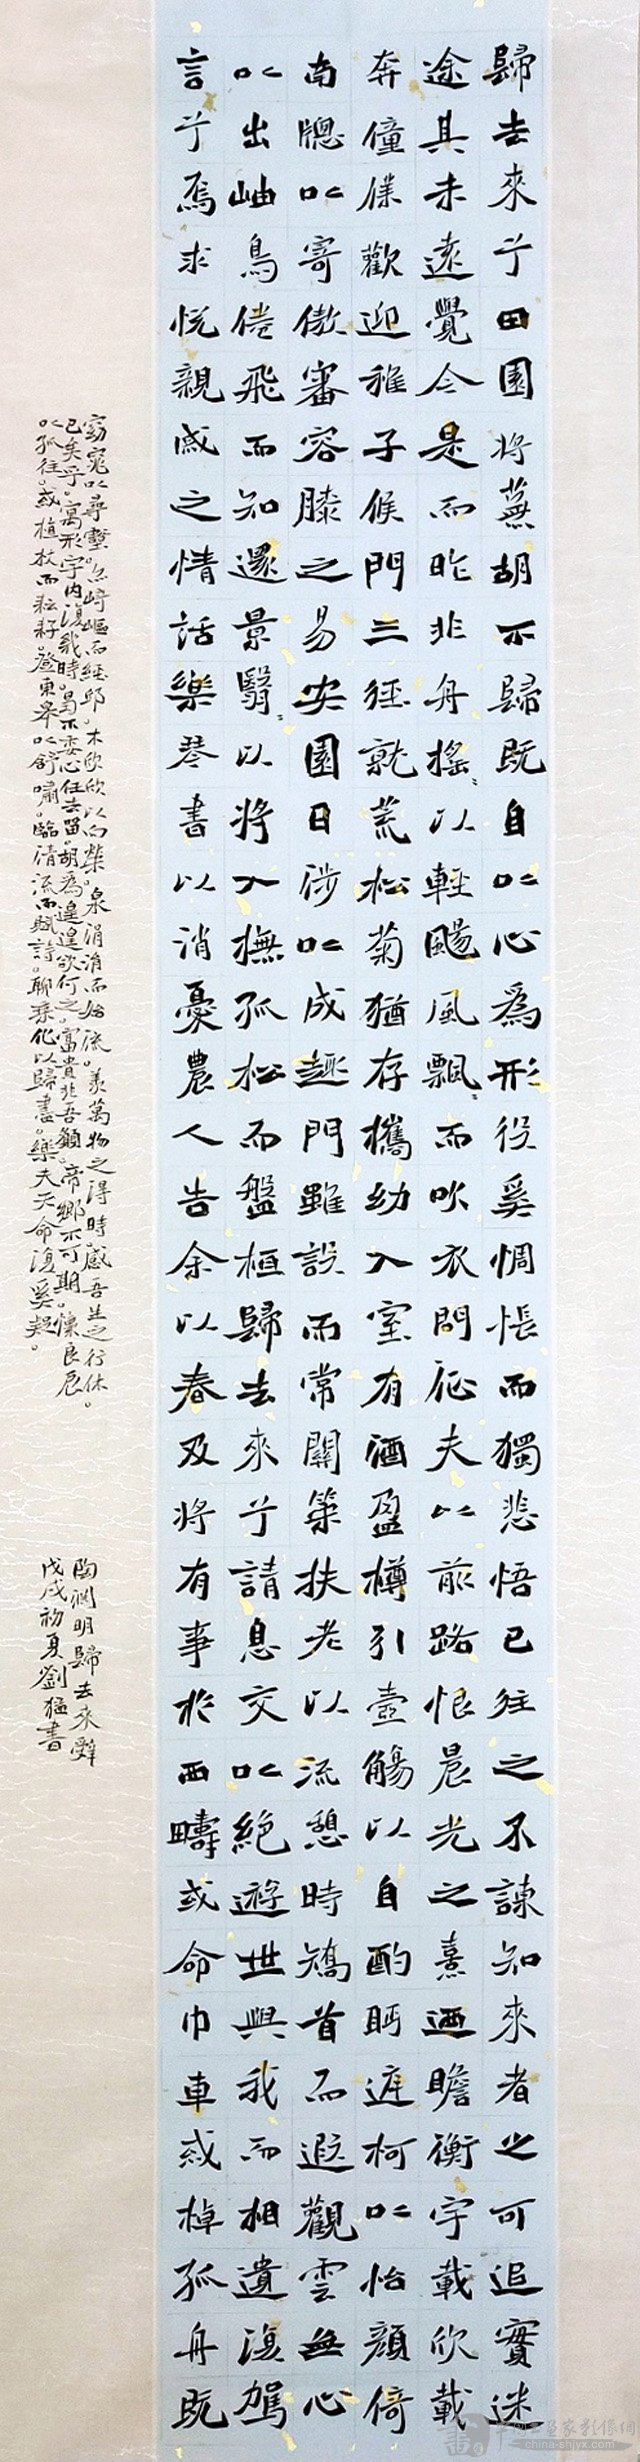 歸去來兮田園將蕪胡不歸既自以心為形役奚惆悵而獨悲悟已往之不諫知來者之可追實迷
途其未遠覺今是而昨非舟搖〻以輕颺風飄〻而吹衣問征夫以前路恨晨光之熹迺瞻衡宇載欣載
奔僮僕歡迎稚子候門三徑就荒松菊猶存攜幼入室有酒盈樽引壺觴以自酌眄庭柯以怡顏倚
南牕以寄傲審容膝之易安園日涉以成趣門雖設而常關策扶老以流憩時矯首而遐觀雲無心
以出岫鳥倦飛而知還景翳〻以將入撫孤松而盤桓歸去來兮請息交以絕遊世與我而相遺復駕
言兮焉求悅親戚之情話樂琴書以消憂農人告余以春及將有事於西疇或命巾車或棹孤舟既
窈窕以尋壑。亦崎嶇而經邱。木欣欣以向榮。泉涓涓而始流。羨萬物之得時感吾生之行休。
已矣乎。寓形宇內復幾時。曷不委心任去留。胡為遑遑欲何之。富貴非吾願。帝鄉不可期。懷良辰
以孤往。或植杖而耘耔。登東皋以舒嘯。臨清流而賦詩。聊乘化以歸盡。樂夫天命復奚疑。
陶淵明歸去來辭
戊戌初夏劉猛書
china-shjyx.com